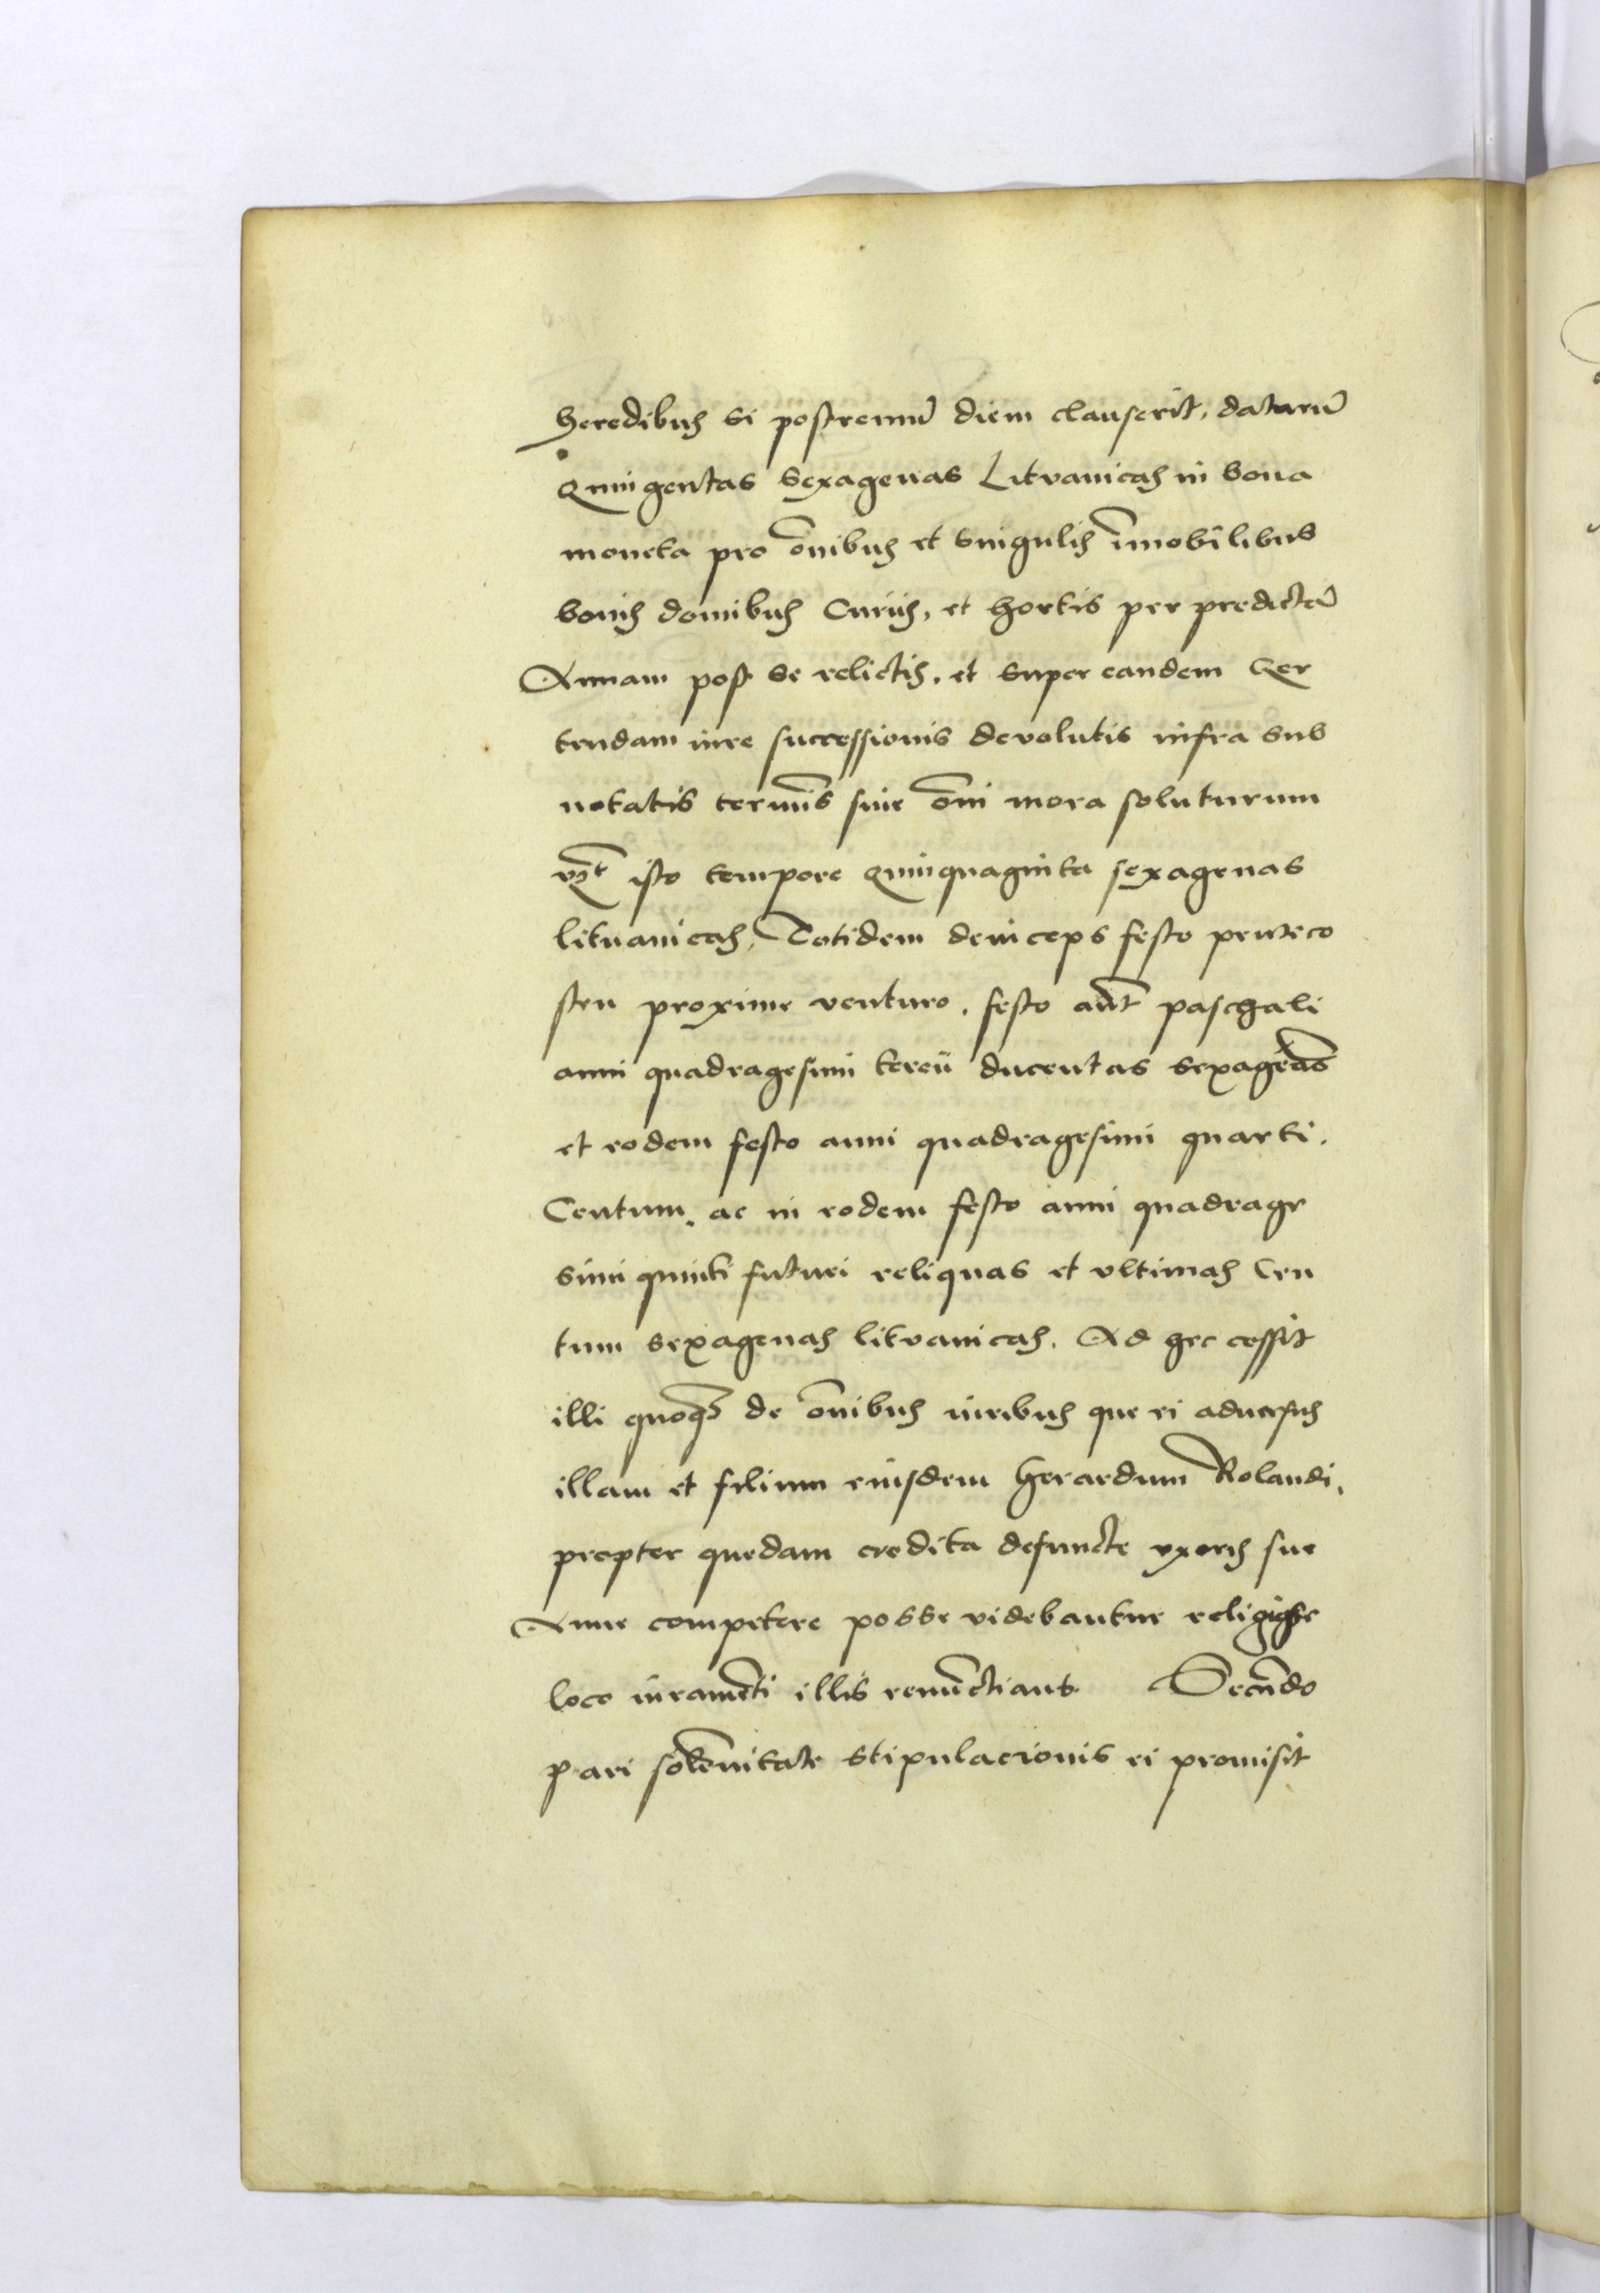 Heredibus si postremũ diem clauserit, daturũ
Quingentas Sexagenas Litvanicas in bona
moneta pro õnibus et singulis im̃obilibus
bonis domibus Curiis, et hortis per predictã
Annam post se relictis, et super eandem Ger
trudam iure successionis devolutis infra sub
notatis termĩs sine õni mora soluturum
vꝫt isto tempore Quinquaginta sexagenas
lituanicas, Totidem deinceps festo penteco
sten proxime venturo, festo aũt paschali
anni quadragesimi tercii ducentas sexagẽas
et eodem festo anni quadragesimi quarti.
Centum, ac in eodem festo anni quadrage
simi quinti futuri reliquas et vltimas Cen
tum sexagenas litvanicas. Ad hec cessit
illi quoqꝫ de õnibus iuribus que ei aduersus
illam et filium eiusdem Gerardum Rolandi,
propter quedam credita defuncte vxoris sue
Anne competere posse videbantur
loco iuramẽti illis renũctians. Secũdo
Pari solẽnitate stipulacionis ei promisit